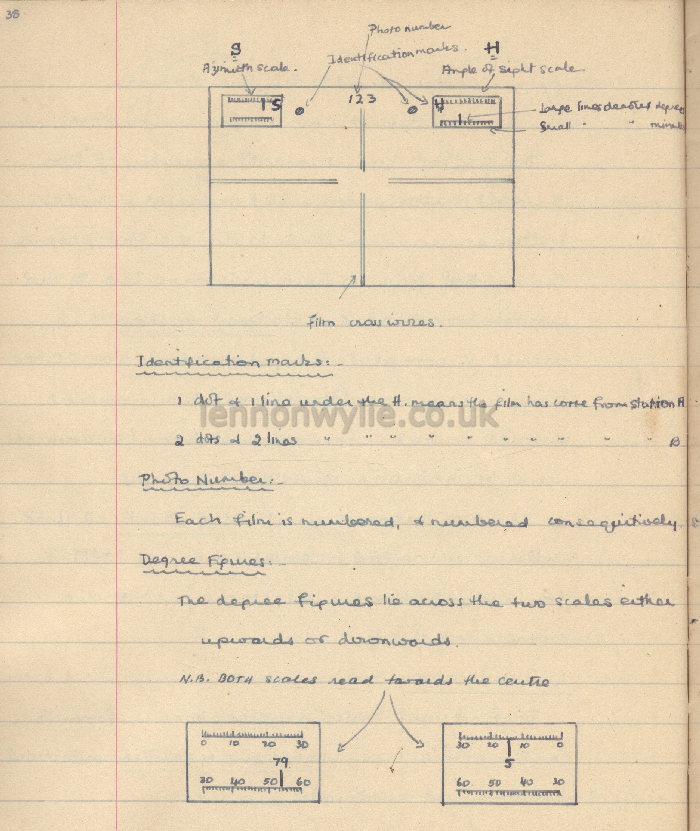 38
Photo Number
S
Identification marks.
H
Azimuth scale.
Angle of sight scale.
15
123
H
Large lines denotes degree
Small " " minute
Film cross wires.
Identification marks:-
1 dot & 1 line under the H. means the film has come from station A
2 dots & 2 lines " " " " " " " " " B
Photo Number:-
Each film is numbered, & numbered consequitively.
Degree Figures:-
The degree figures lie across the two scales either
upwards or downwards.
N.B. BOTH scales read towards the centre
0 10 20 30
30 20 10 0
79
5
30 40 50 60
60 50 40 30
lennonwylie.co.uk